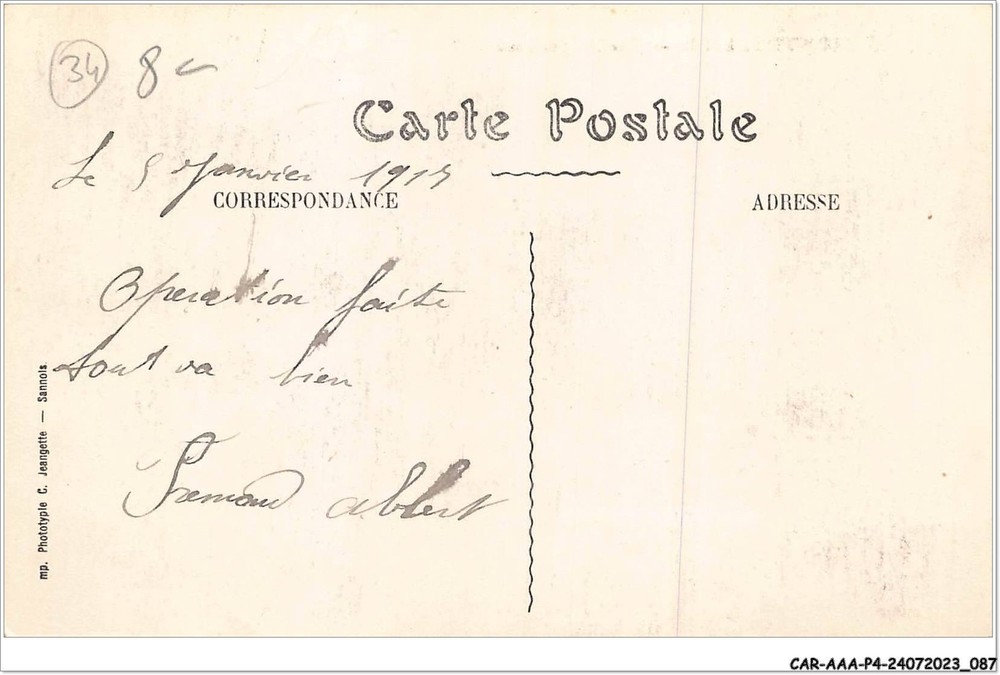 34 8
Carte Postale
Le 5 Janvier 1915
CORRESPONDANCE
ADRESSE
Operation faite
tout va bien
albert
mp. Phototypie C. Jeangette — Sannois.
CAR-AAA-P4-24072023_087